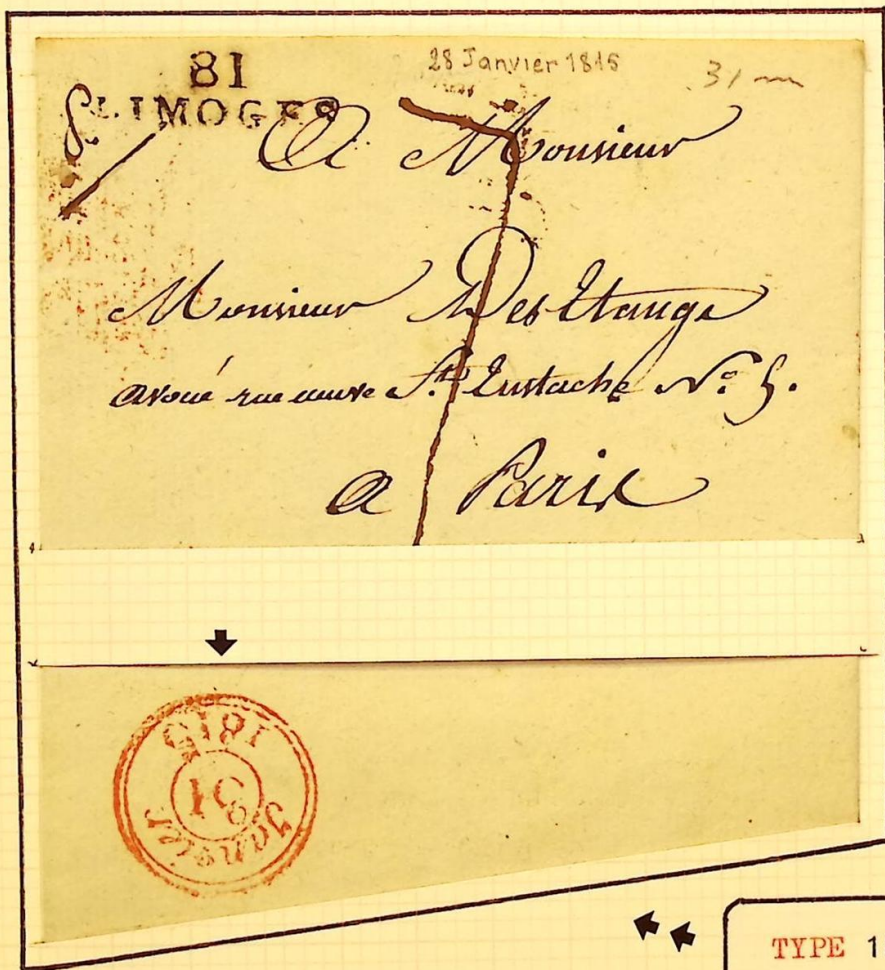 81
LIMOGES
28 Janvier 1815
31
7
A Monsieur
Monsieur Des Etangs
avoué rue neuve St. Eustache No. 5.
a Paris
1815
31
Janvier
TYPE 1